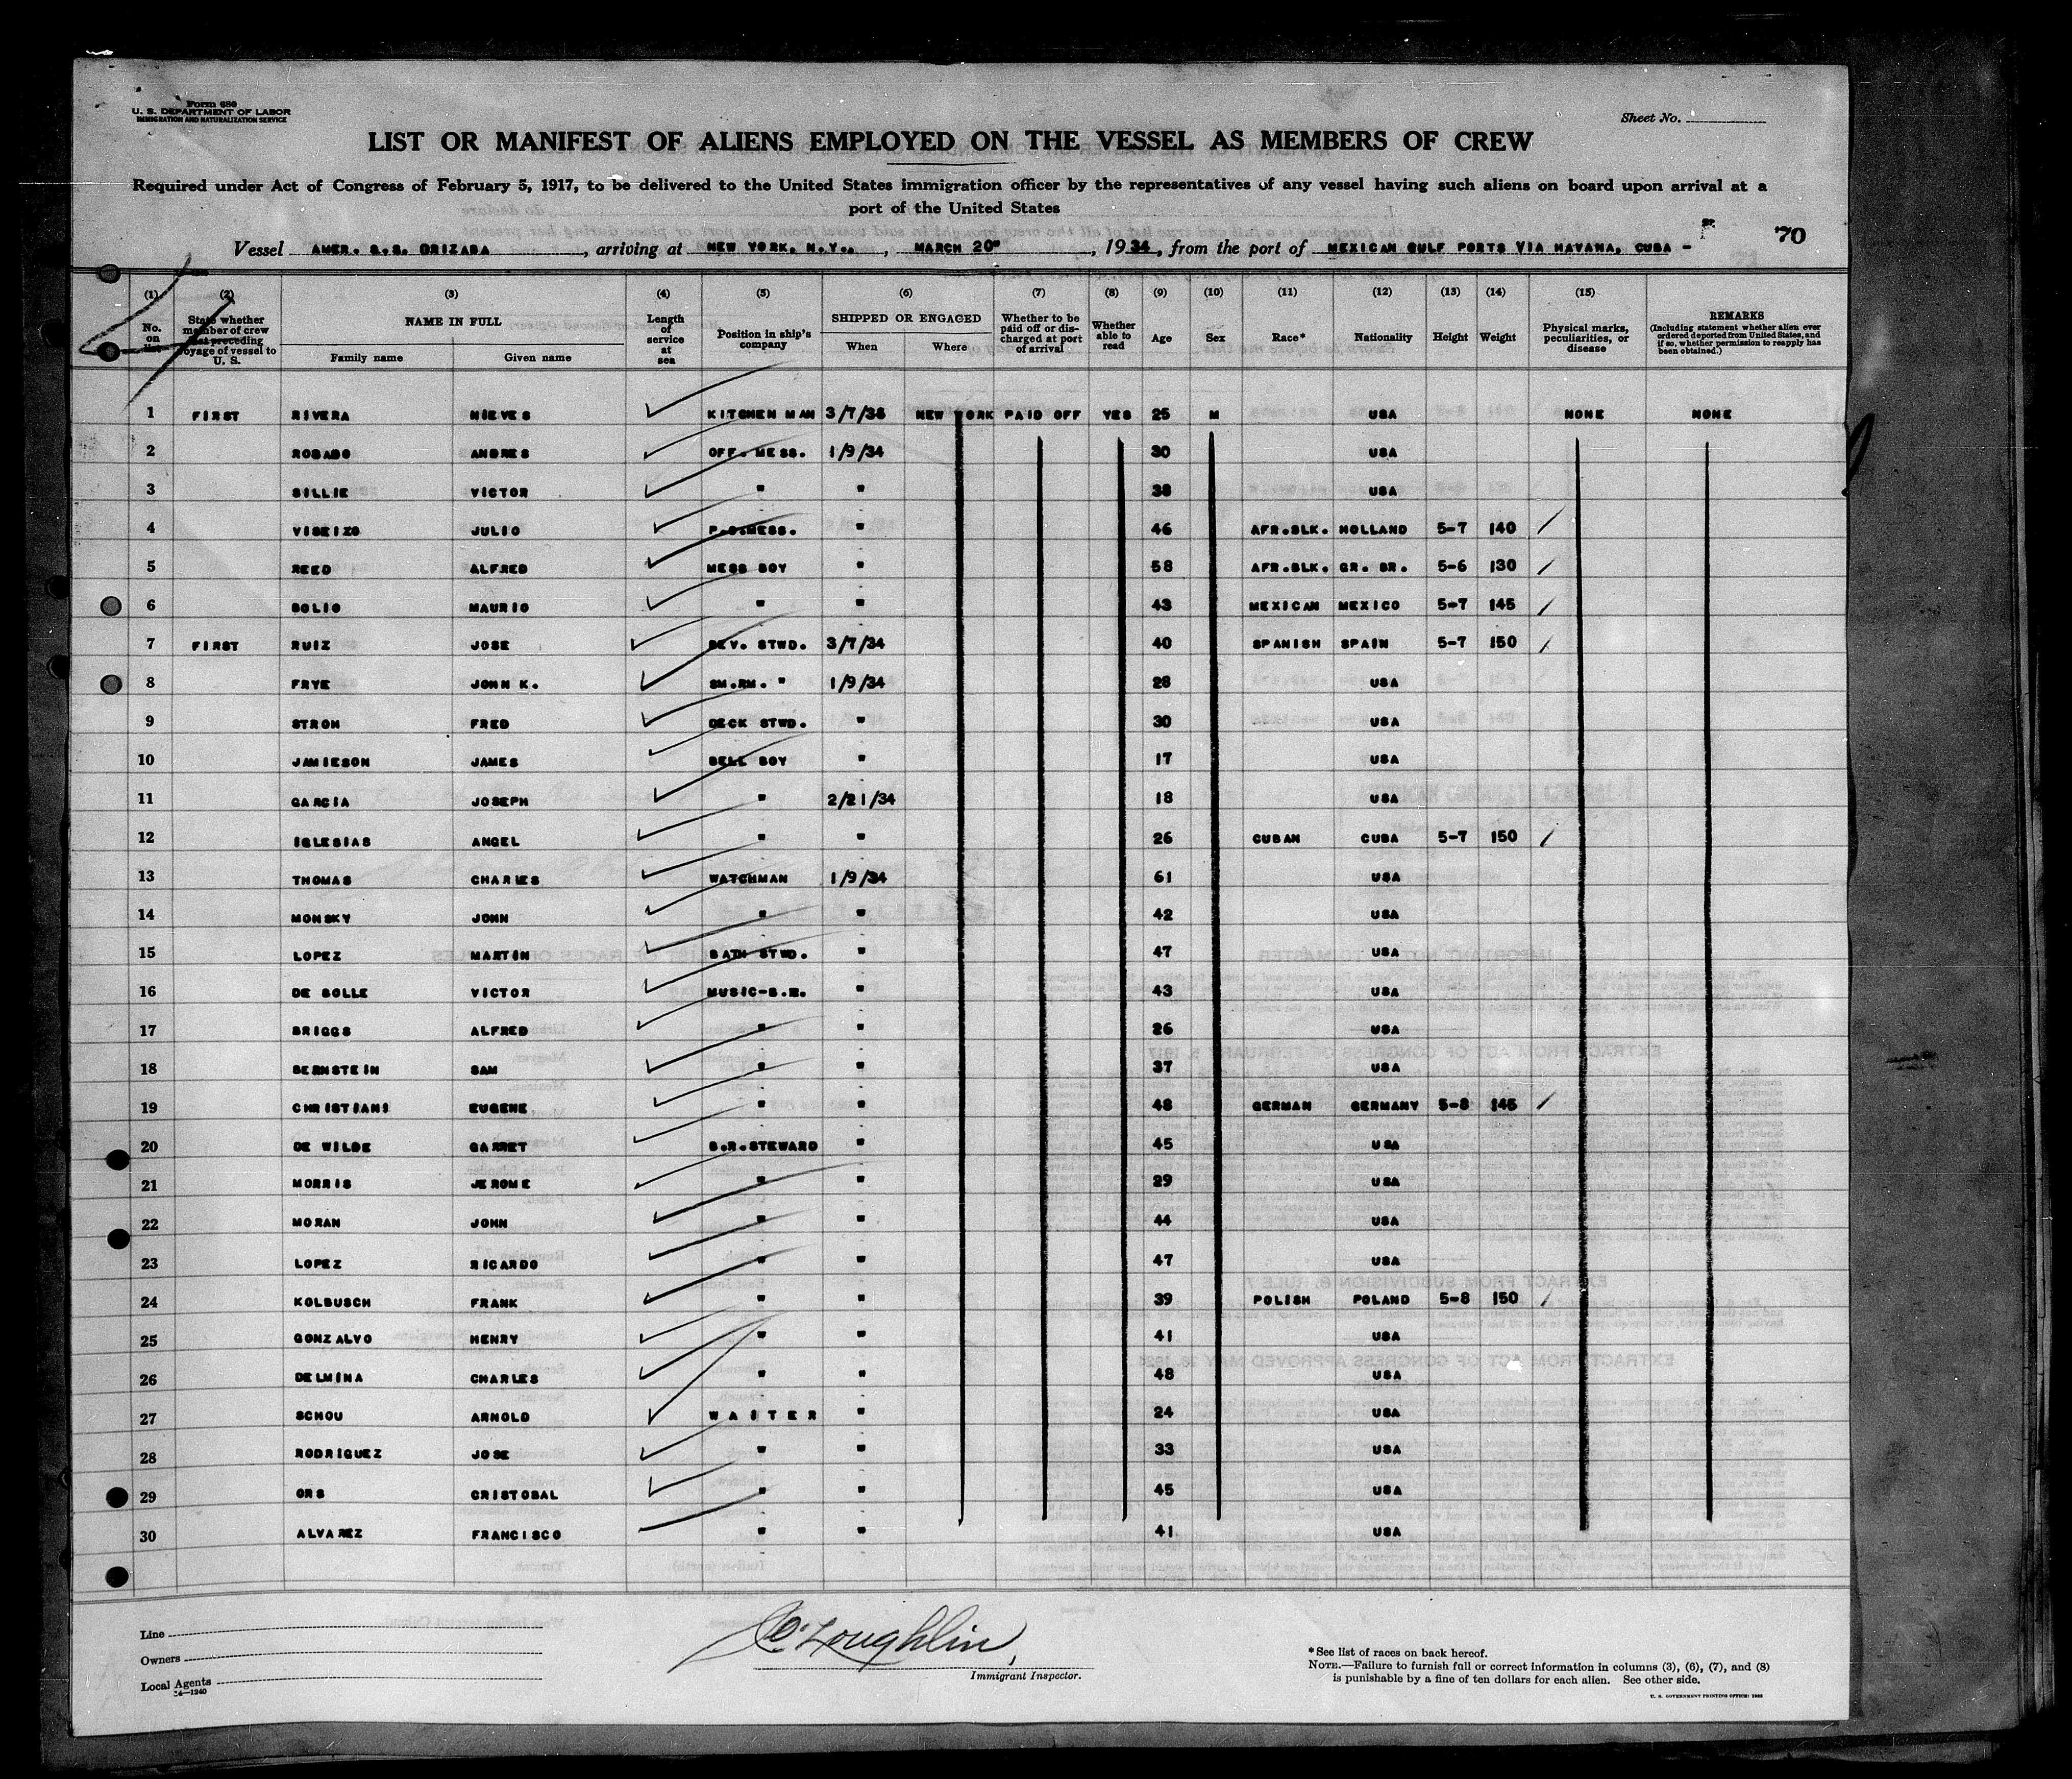 Form 680
U. S. DEPARTMENT OF LABOR
IMMIGRATION AND NATURALIZATION SERVICE
Sheet No.
LIST OR MANIFEST OF ALIENS EMPLOYED ON THE VESSEL AS MEMBERS OF CREW
Required under Act of Congress of February 5, 1917, to be delivered to the United States immigration officer by the representatives of any vessel having such aliens on board upon arrival at a
port of the United States
Vessel AMER. S.S. ORIZABA, arriving at NEW YORK, N.Y., MARCH 20", 1934, from the port of MEXICAN GULF PORTS VIA HAVANA, CUBA - 70
(1) (2) (3) (4) (5) (6) (7) (8) (9) (10) (11) (12) (13) (14) (15)
No. on list
State whether member of crew last preceding voyage of vessel to U. S.
NAME IN FULL
Family name Given name
Length of service at sea
Position in ship's company
SHIPPED OR ENGAGED
When Where
Whether to be paid off or discharged at port of arrival
Whether able to read
Age Sex Race* Nationality Height Weight
Physical marks, peculiarities, or disease
REMARKS
(Including statement whether alien ever ordered deported from United States, and if so, whether permission to reapply has been obtained.)
1 FIRST RIVERA NIEVES KITCHEN MAN 3/7/34 NEW YORK PAID OFF YES 25 M USA NONE NONE
2 ROSADO ANDRES OFF. MESS. 1/9/34 30 USA
3 SILLIE VICTOR " " 38 USA
4 JULIO P.O.MESS. " 46 AFR.BLK. HOLLAND 5-7 140
5 REED ALFRED MESS BOY " 58 AFR.BLK. GR. BR. 5-6 130
6 SOLIO MAURIO " " 43 MEXICAN MEXICO 5-7 145
7 FIRST RUIZ JOSE BEV. STWD. 3/7/34 40 SPANISH SPAIN 5-7 150
8 FRYE JOHN K. SM.RM. " 1/9/34 28 USA
9 STROH FRED DECK STWD. " 30 USA
10 JAMIESON JAMES BELL BOY " 17 USA
11 GARCIA JOSEPH " 2/21/34 18 USA
12 IGLESIAS ANGEL " " 26 CUBAN CUBA 5-7 150
13 THOMAS CHARLES WATCHMAN 1/9/34 61 USA
14 MONSKY JOHN " " 42 USA
15 LOPEZ MARTIN BATH STWD. " 47 USA
16 DE SOLLE VICTOR MUSIC-S.R. " 43 USA
17 BRIGGS ALFRED " " 26 USA
18 BERNSTEIN SAM " " 37 USA
19 CHRISTIANI EUGENE " " 48 GERMAN GERMANY 5-8 145
20 DE WILDE GARRET S.R.STEWARD " 45 USA
21 MORRIS JEROME " " 29 USA
22 MORAN JOHN " " 44 USA
23 LOPEZ RICARDO " " 47 USA
24 KOLBUSCH FRANK " " 39 POLISH POLAND 5-8 150
25 GONZALVO HENRY " " 41 USA
26 DELMINA CHARLES " " 48 USA
27 SCHOU ARNOLD WAITER " 24 USA
28 RODRIGUEZ JOSE " " 33 USA
29 ORS CRISTOBAL " " 45 USA
30 ALVAREZ FRANCISCO " " 41 USA
Line
Owners
Local Agents
14—1240
Loughlin
Immigrant Inspector.
*See list of races on back hereof.
NOTE.—Failure to furnish full or correct information in columns (3), (6), (7), and (8)
is punishable by a fine of ten dollars for each alien. See other side.
U. S. GOVERNMENT PRINTING OFFICE: